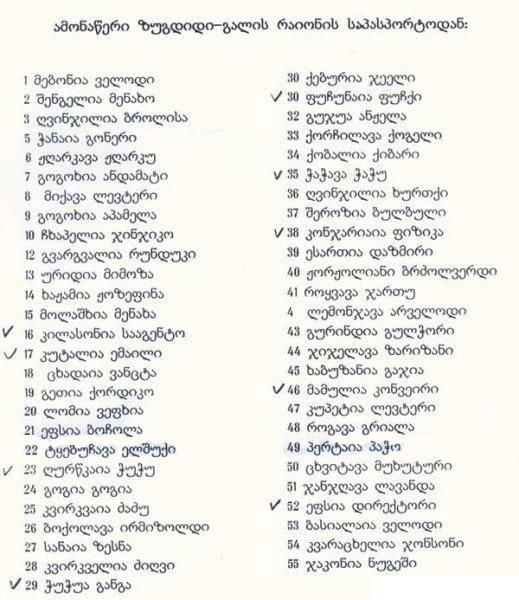 ამონაწერი ზუგდიდი-გალის რაიონის საპასპორტოდან:
1 მებონია ველოდი
2 შენგელია მენახო
3 ღვინჯილია ბროლისა
5 ჭანაია გონერი
6 ჟღარკავა ჟღარკუ
7 გოგოხია ანდამატი
8 მიქავა ლევტერი
9 გოგოხია აპამელა
10 ჩხაპელია ჯინჯიკო
12 გვარგვალია რუნდუკი
13 ურიდია მიმოზა
14 ხაჟამია ჟოზეფინა
15 მოლაშხია მენახა
16 კილასონია სააგენტო
17 კუტალია ემაილი
18 ცხადაია ვანცტა
19 გეთია ქორდიკო
20 ლომია ვეფხია
21 ეფსია ბოჩოლა
22 ტყებუჩავა ელშუქი
23 ღურწკაია ჭუჭუ
24 გოგია გოგია
25 კვირკვაია ძაძუ
26 ბოქოლავა ირმიზოლდი
27 სანაია ზესნა
28 კვირკველია ძიღვი
29 ჭუჭუა განგა
30 ქებურია ჯეელი
30 ფუჩუნაია ფუჩქი
32 გუჯუა ანჟელა
33 ქორჩილავა ქოგელი
34 ქობალია ქიბარი
35 ჭაჭავა ჭაჭუ
36 ღვინჯილია ხურთქი
37 შეროზია ბულბული
38 კონჯარიაია ფიზიკა
39 ესართია დაზმირი
40 ჟორჟოლიანი ბრძოლვერდი
41 როყვავა ჯართუ
4 ლემონჯავა არველოდი
43 გურინდია გულჭორი
44 ჯიჯელავა ზარიზანი
45 ხაბუზანია გაჯია
46 მამულია კონვეირი
47 კუპეტია ლევტერი
48 როგავა გრიალა
49 პერტაია პაჭო
50 ცხვიტავა მუხუტური
51 ჯანჯღავა ლავანდა
52 ეფსია დირექტორი
53 ბასიალაია ველოდი
54 კვარაცხელია ჯონსონი
55 ჯაკონია ნუგეში